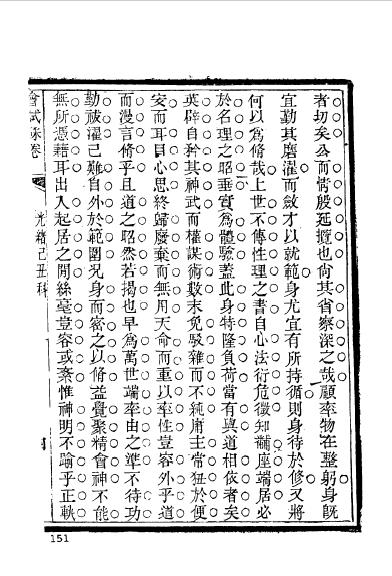 者切矣公而情殷延攬也尚其省察深之哉顧率物在整躬身既
宜勤其磨濯而斂才以就範身尤宜有所持循則身待於修又將
何以爲脩哉上世不傳性理之書自心法衍危微知黼座端居必
於名理之昭垂實爲體驗蓋此身特隆負荷當有與道相依者矣
英辟自矜其神武而權謀術數末免駁雜而不純庸主常狃於便
安而耳目心思終歸廢棄而無用天命而重以率性豈容外乎道
而漫言脩乎且道之昭然若揭也早爲萬世端率由之準不待功
勤祓濯己難自外於範圍兄身而密之以脩益覺聚精會神不能
無所憑藉耳出入起居之閒絲毫豈容或紊惟神明不踰乎正軌
會試硃卷
光緒己丑科
151